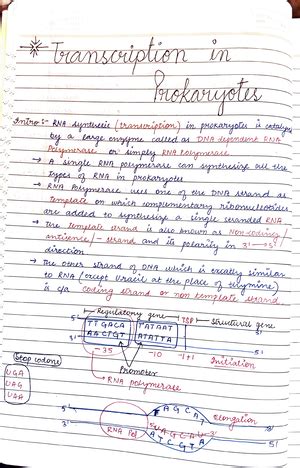 Transcription in
Prokaryotes
Intro :- RNA synthesis (transcription) in prokaryotes is catalyzed
by a large enzyme called as DNA dependent RNA
Polymerase or simply RNA Polymerase
→ A single RNA polymerase can synthesize all the
types of RNA in prokaryotes
→ RNA Polymerase uses one of the DNA strand as
template on which complementary ribonucleotides
are added to synthesize a single stranded RNA
→ The template strand is also known as Non-coding /
antisense / - strand and its polarity in 3' → 5'
direction
→ The other strand of DNA which is exactly similar
to RNA (except Uracil at the place of thymine)
is c/a coding strand or non template strand
Regulatory gene TSP Structural gene
TTGACA TATAAT
AACTGT ATATTA
5'
-35 -10 +1 Initiation
Promoter
RNA polymerase
Stop codons
UGA
UAG
UAA
5' AGCAT Elongation
3' RNA Pol
ATCGTA 5'